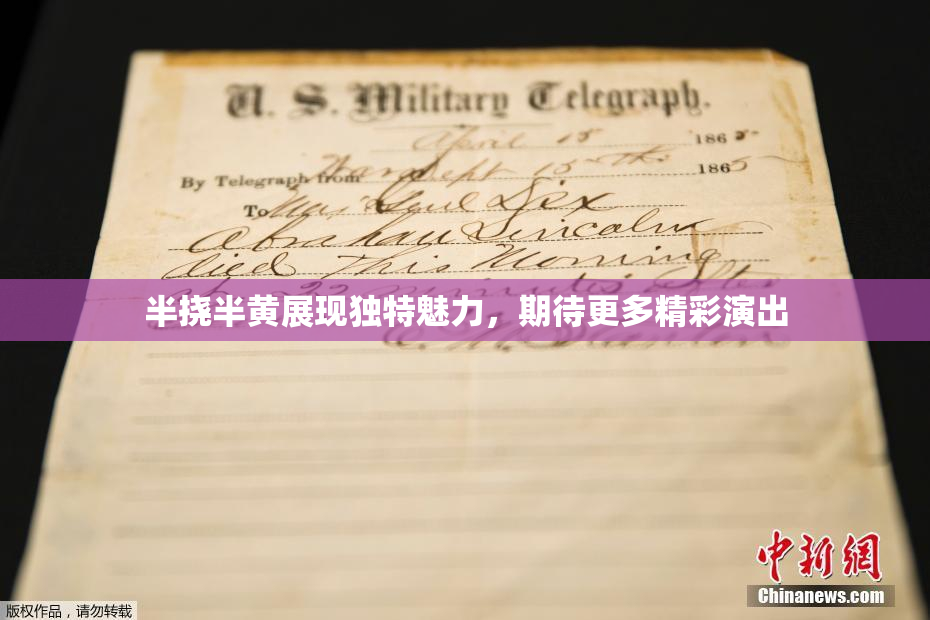 U. S. Military Telegraph.
April 15 1865
By Telegraph from War Dept 15th 1865
To Maj Genl Dix
Abraham Lincoln
died This Morning
at 22 minutes after
半挠半黄展现独特魅力，期待更多精彩演出
E. M. Stanton
中新网
Chinanews.com
版权作品，请勿转载